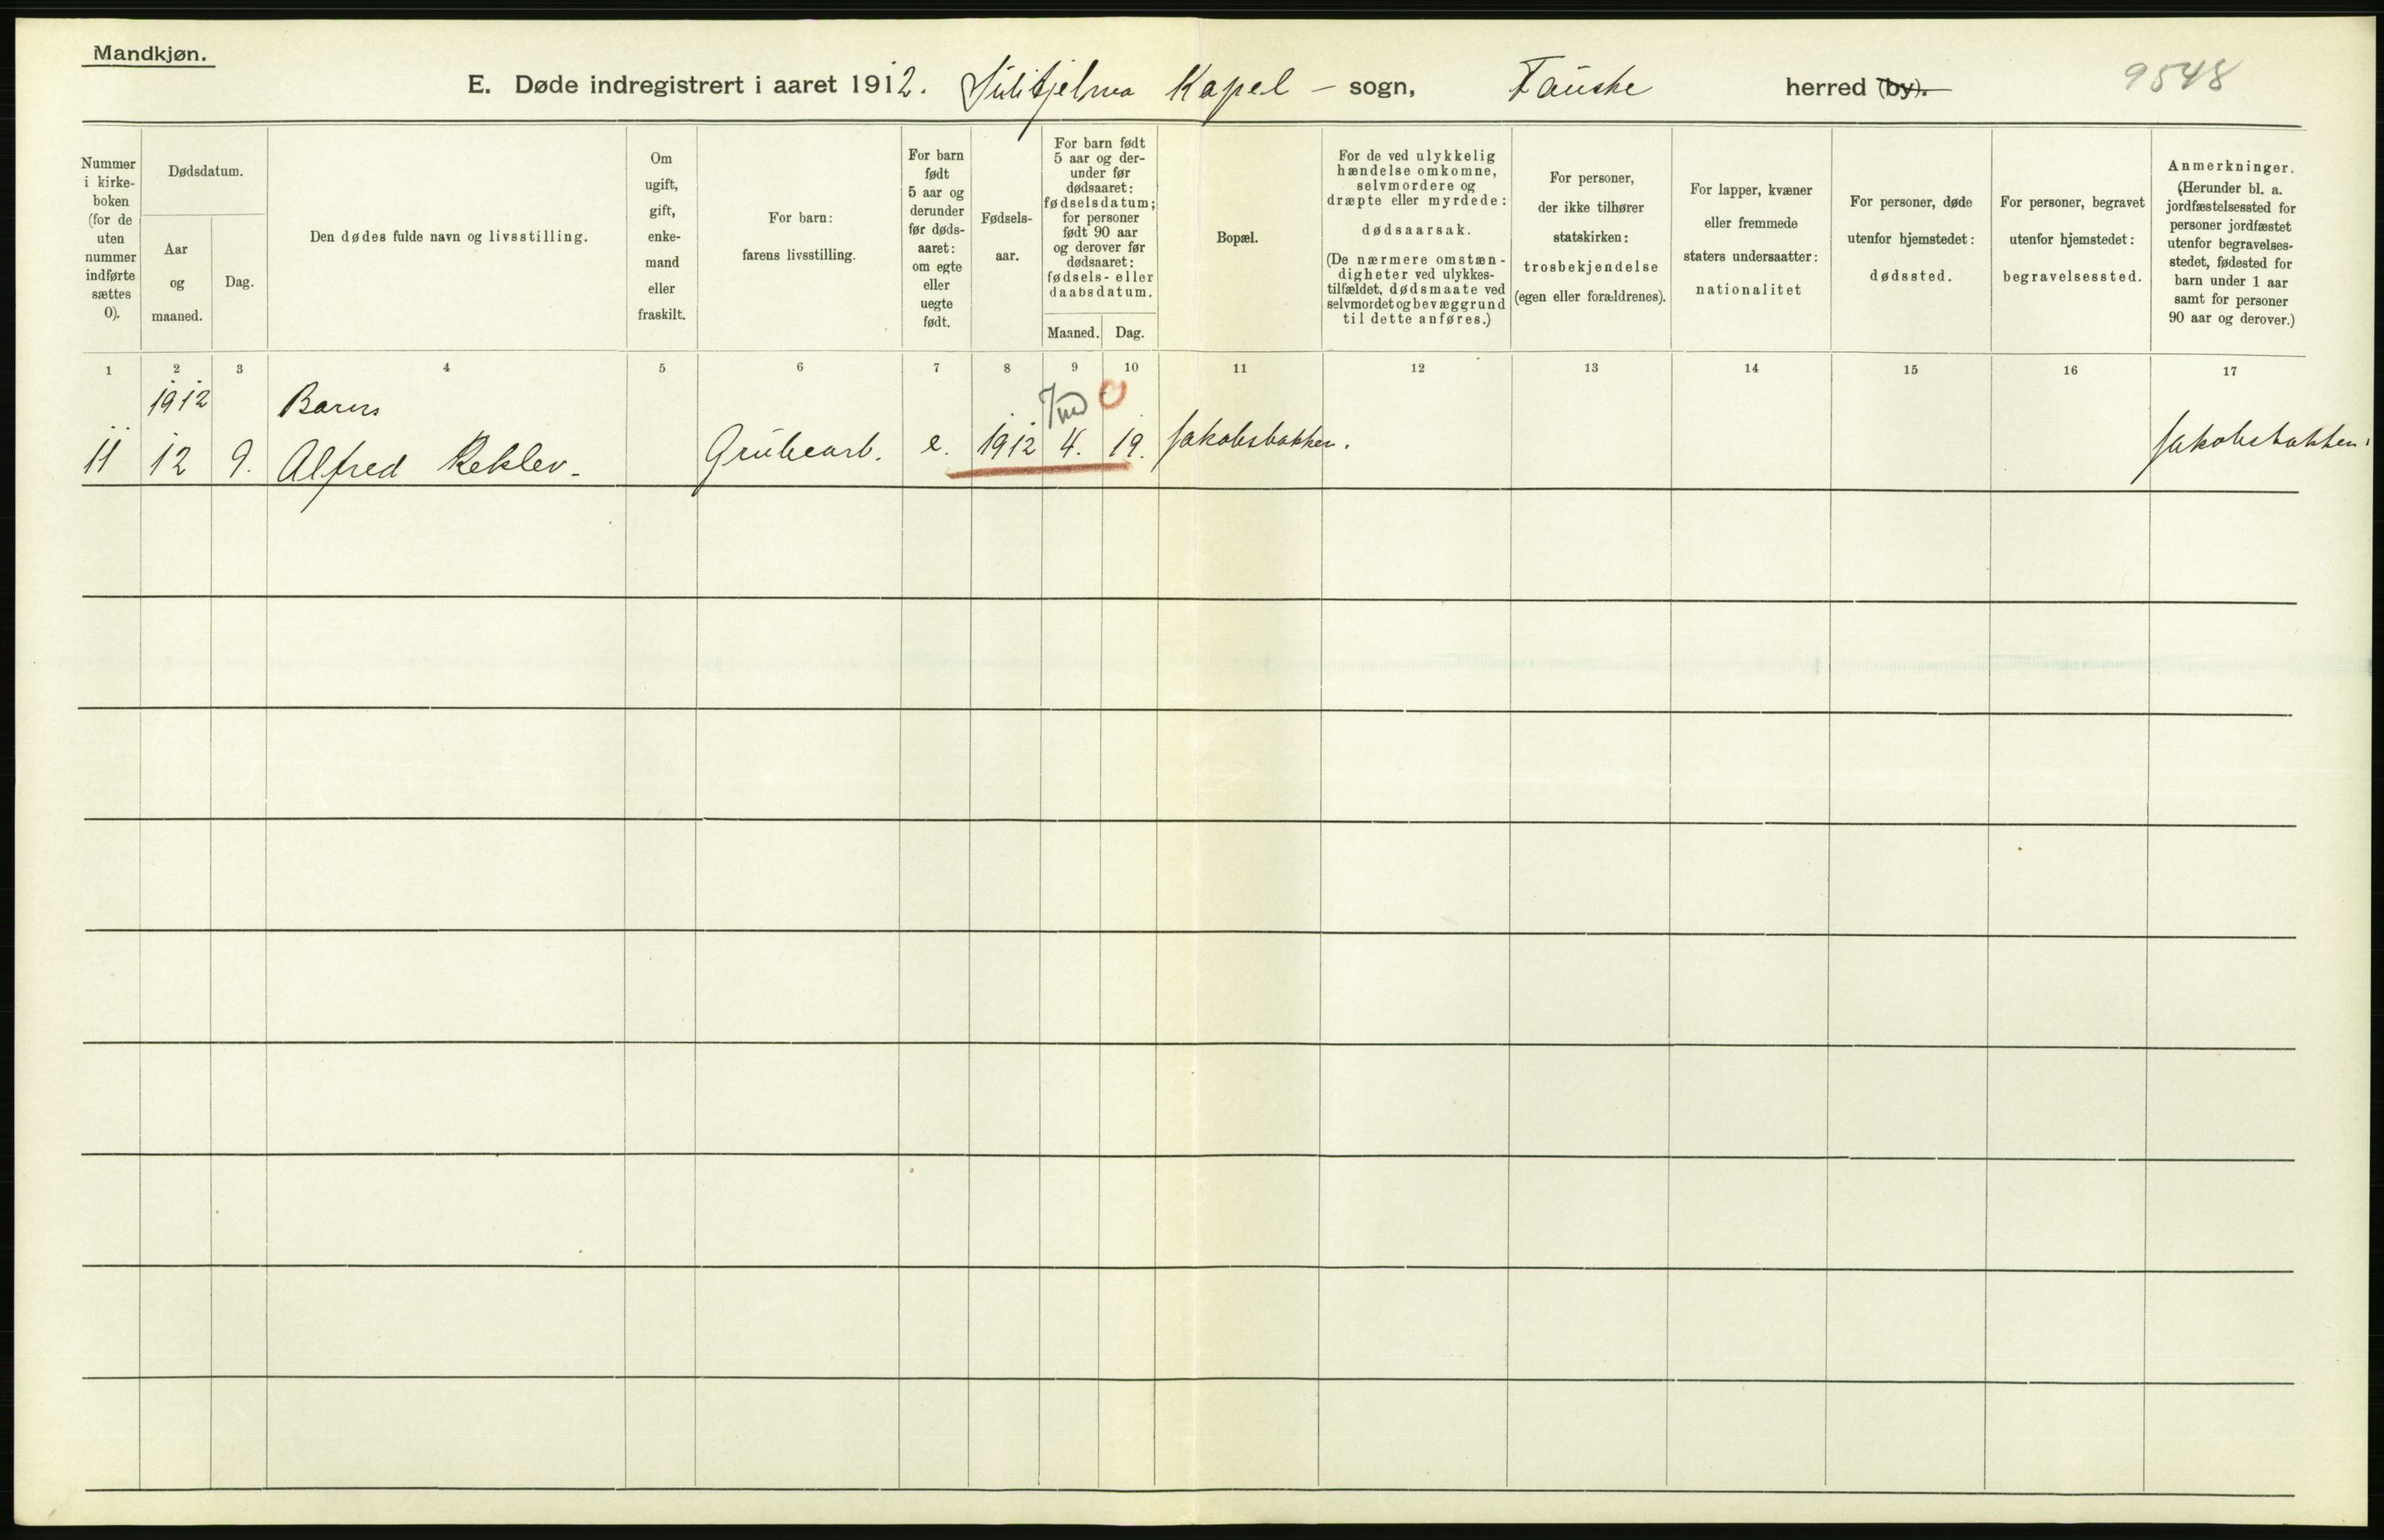 Mandkjøn.
E. Døde indregistrert i aaret 1912. Sulitjelma Kapel - sogn, Fauske herred (by).
9548
Nummer
i kirke-
boken
(for de
uten
nummer
indførte
sættes
0).
Dødsdatum.
Aar
og
maaned.
Dag.
Den dødes fulde navn og livsstilling.
Om
ugift,
gift,
enke-
mand
eller
fraskilt.
For barn:
farens livsstilling.
For barn
født
5 aar og
derunder
før døds-
aaret:
om egte
eller
uegte
født.
Fødsels-
aar.
For barn født
5 aar og der-
under før
dødsaaret:
fødselsdatum;
for personer
født 90 aar
og derover før
dødsaaret:
fødsels- eller
daabsdatum.
Maaned.
Dag.
Bopæl.
For de ved ulykkelig
hændelse omkomne,
selvmordere og
dræpte eller myrdede:
dødsaarsak.
(De nærmere omstæn-
digheter ved ulykkes-
tilfældet, dødsmaate ved
selvmordet og bevæggrund
til dette anføres.)
For personer,
der ikke tilhører
statskirken:
trosbekjendelse
(egen eller forældrenes).
For lapper, kvæner
eller fremmede
staters undersaatter:
nationalitet
For personer, døde
utenfor hjemstedet:
dødssted.
For personer, begravet
utenfor hjemstedet:
begravelsessted.
Anmerkninger.
(Herunder bl. a.
jordfæstelsessted for
personer jordfæstet
utenfor begravelses-
stedet, fødested for
barn under 1 aar
samt for personer
90 aar og derover.)
1 2 3 4 5 6 7 8 9 10 11 12 13 14 15 16 17
1912 Barn 7 m 0
11 12 9. Alfred Reklev- Grubearb. e. 1912 4. 19. Jakobsbakken. Jakobsbakken.